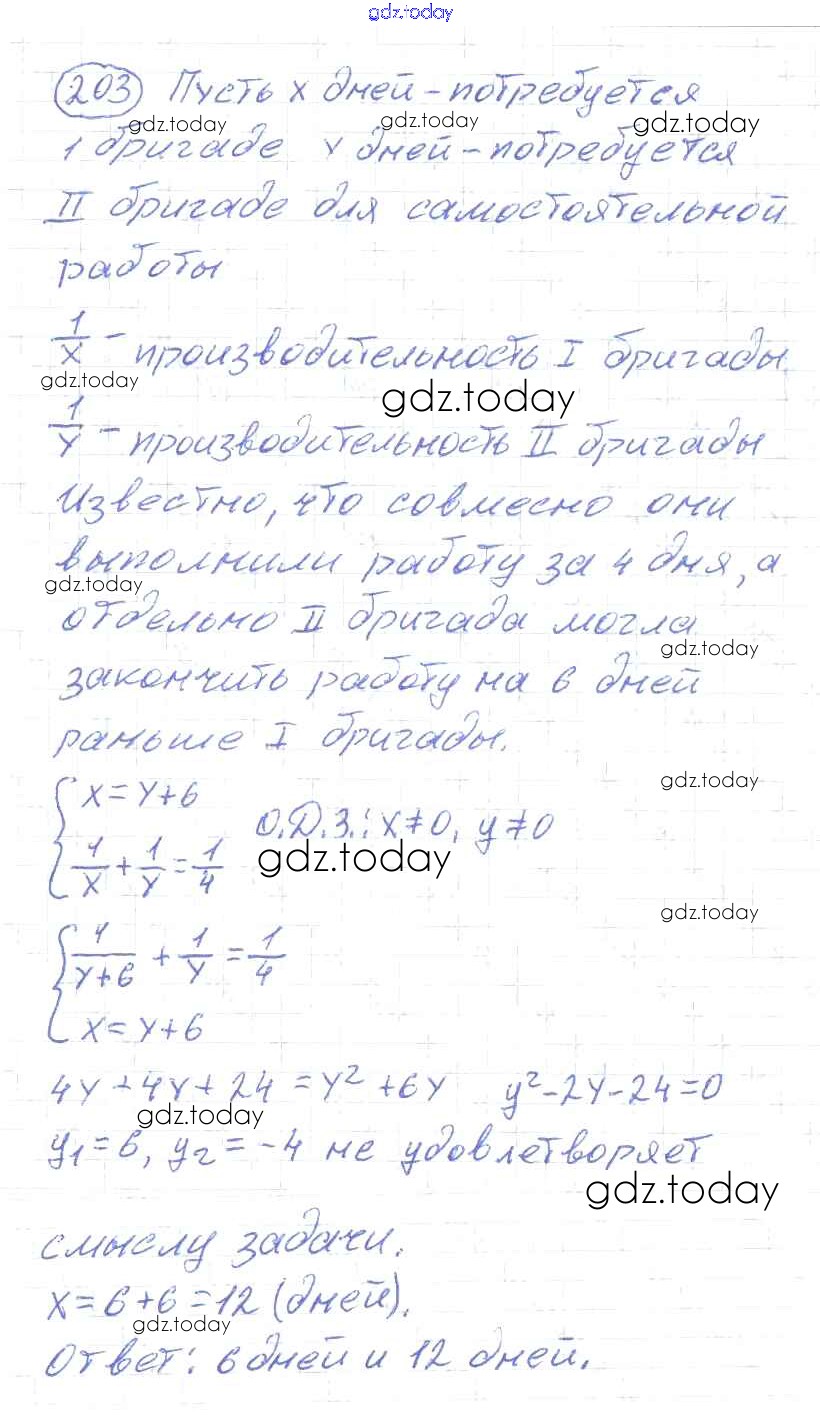 gdz.today
203 Пусть x дней - потребуется
gdz.today gdz.today gdz.today
1 бригаде y дней - потребуется
II бригаде для самостоятельной
работы
1/x - производительность I бригады.
gdz.today gdz.today
1/y - производительность II бригады
Известно, что совмесно они
выполнили работу за 4 дня, а
gdz.today
отдельно II бригада могла
gdz.today
закончить работу на 6 дней
раньше I бригады.
gdz.today
{ x = y + 6
О.Д.З.: x ≠ 0, y ≠ 0
1/x + 1/y = 1/4
gdz.today
gdz.today
{ 1/(y+6) + 1/y = 1/4
x = y + 6
4y + 4y + 24 = y² + 6y y² - 2y - 24 = 0
gdz.today
y₁ = 6, y₂ = -4 не удовлетворяет
gdz.today
смыслу задачи.
x = 6 + 6 = 12 (дней).
gdz.today
Ответ: 6 дней и 12 дней.